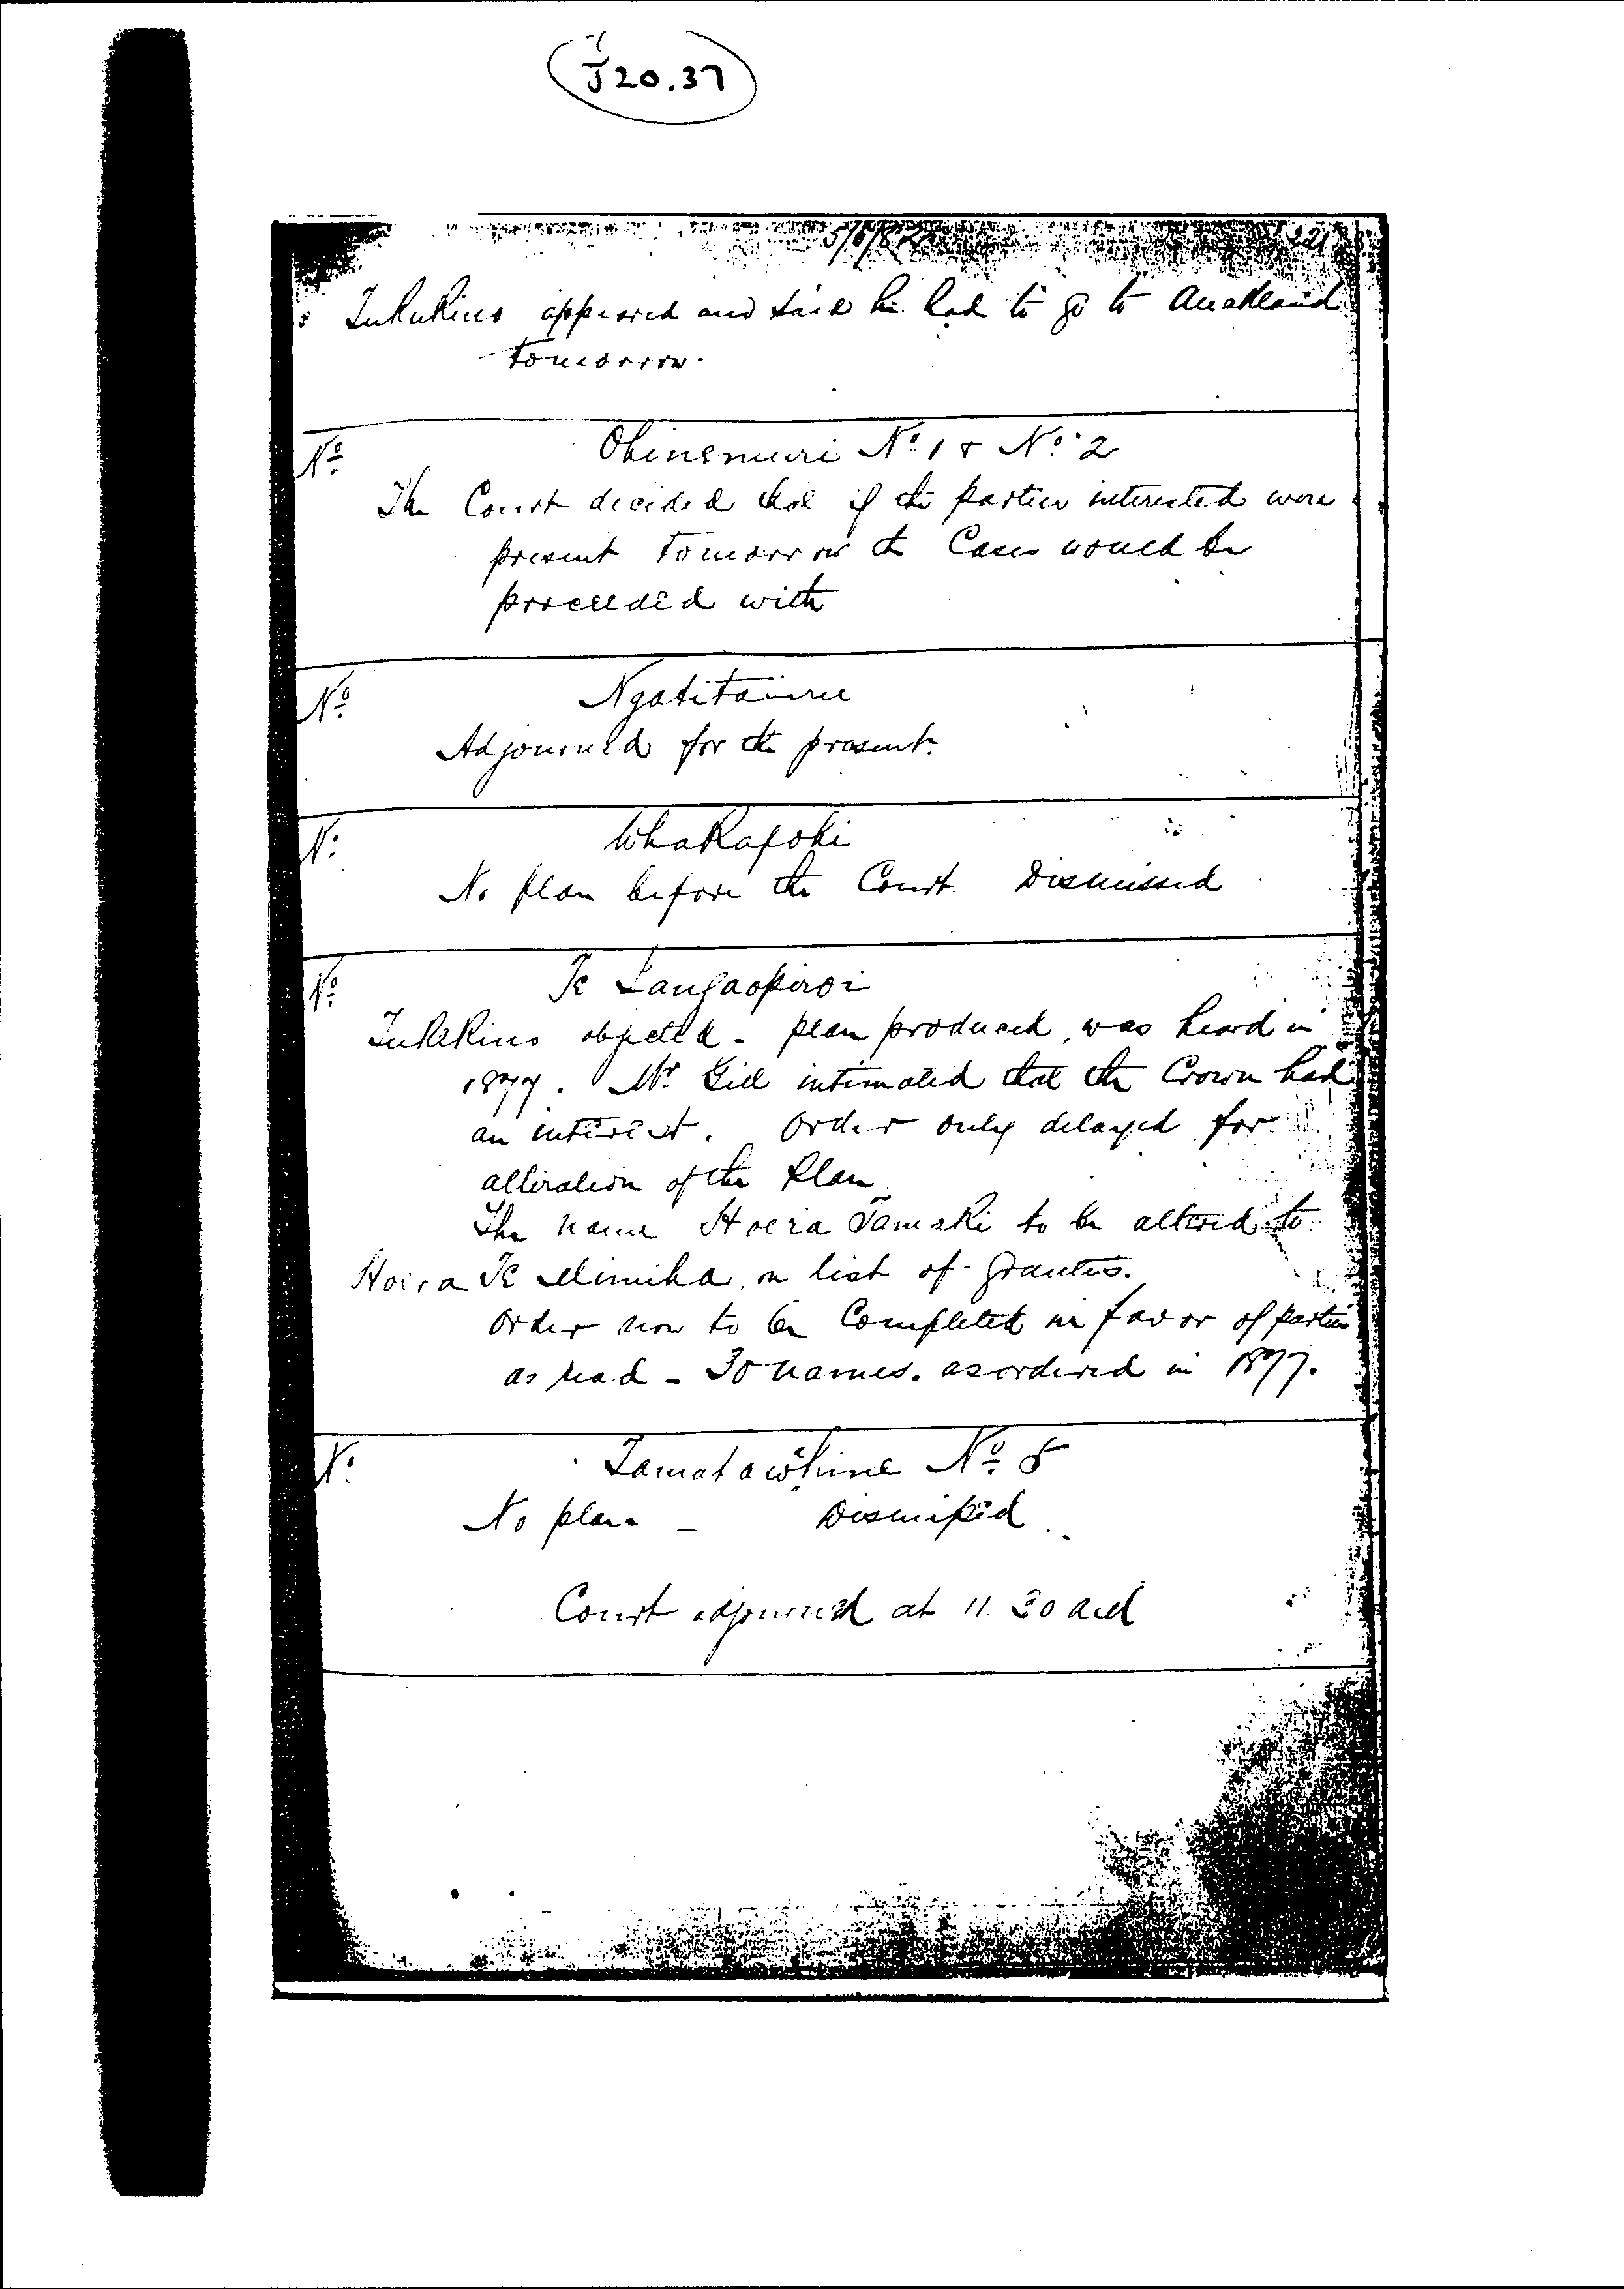 J20.37
5/6/82 221
Tukukino appeared and said he had to go to Auckland
tomorrow.
No. Ohinemuri No. 1 & No. 2
The Court decided that if the parties interested were
present tomorrow the Cases would be
proceeded with
No. Ngatitauru
Adjourned for the present.
No. Whakapohi
No plan before the Court. Dismissed
No. Te
Tukukino objected - plan produced, was heard in
1877. Mr. Gill intimated that the Crown had
an interest. Order only delayed for
alteration of the Plan
The name Hoera Tamaki to be altered to
Hoera Te Mimiha, on list of Grantees.
Order now to be Completed in favor of parties
as read - 30 names. as ordered in 1877.
No. Tamatawhine No. 8
No plan - Dismissed
Court adjourned at 11.30 AM